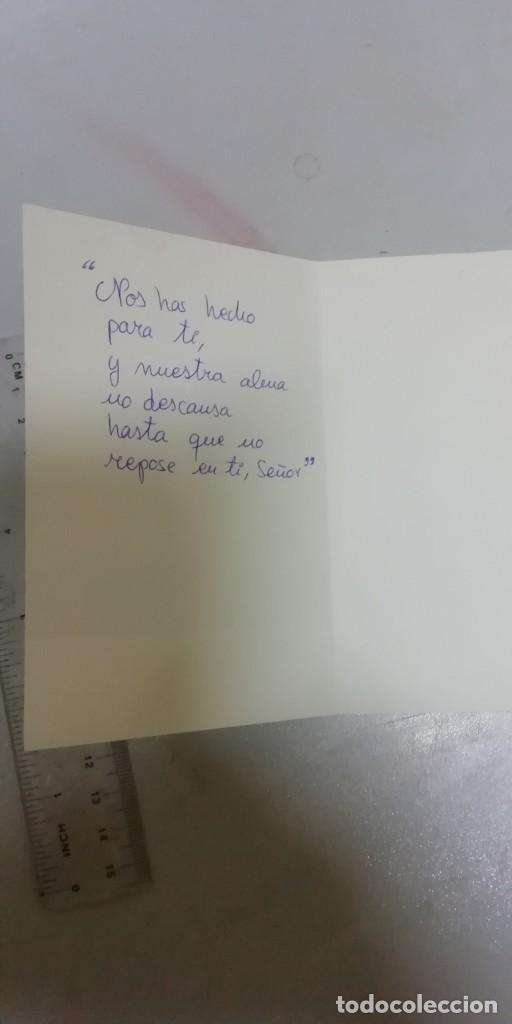 “
Nos has hecho
para ti,
y nuestra alma
no descansa
hasta que no
repose en ti, Señor”
0 CM 1
2
4
12
13
14
15
1
INCH
0
todocoleccion